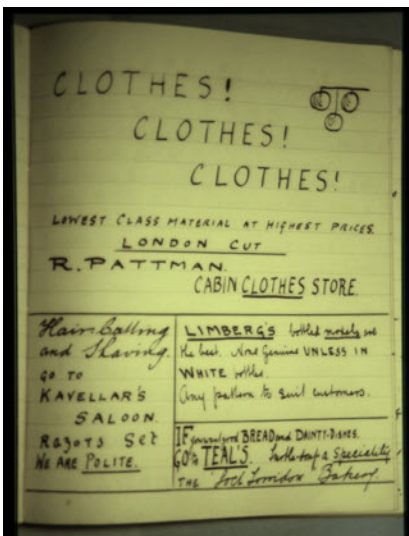 CLOTHES!
CLOTHES!
CLOTHES!
LOWEST CLASS MATERIAL AT HIGHEST PRICES.
LONDON CUT
R. PATTMAN.
CABIN CLOTHES STORE
Hair Cutting
and Shaving.
GO TO
KAVELLAR'S
SALOON.
Razors Set
WE ARE POLITE.
LIMBERG'S bottled models are
the best. None Genuine UNLESS IN
WHITE bottles.
Any pattern to suit customers.
IF you want good BREAD and DAINTY-DISHES.
GO to TEAL'S. Turtle-Soup a Speciality
THE "Bakery.